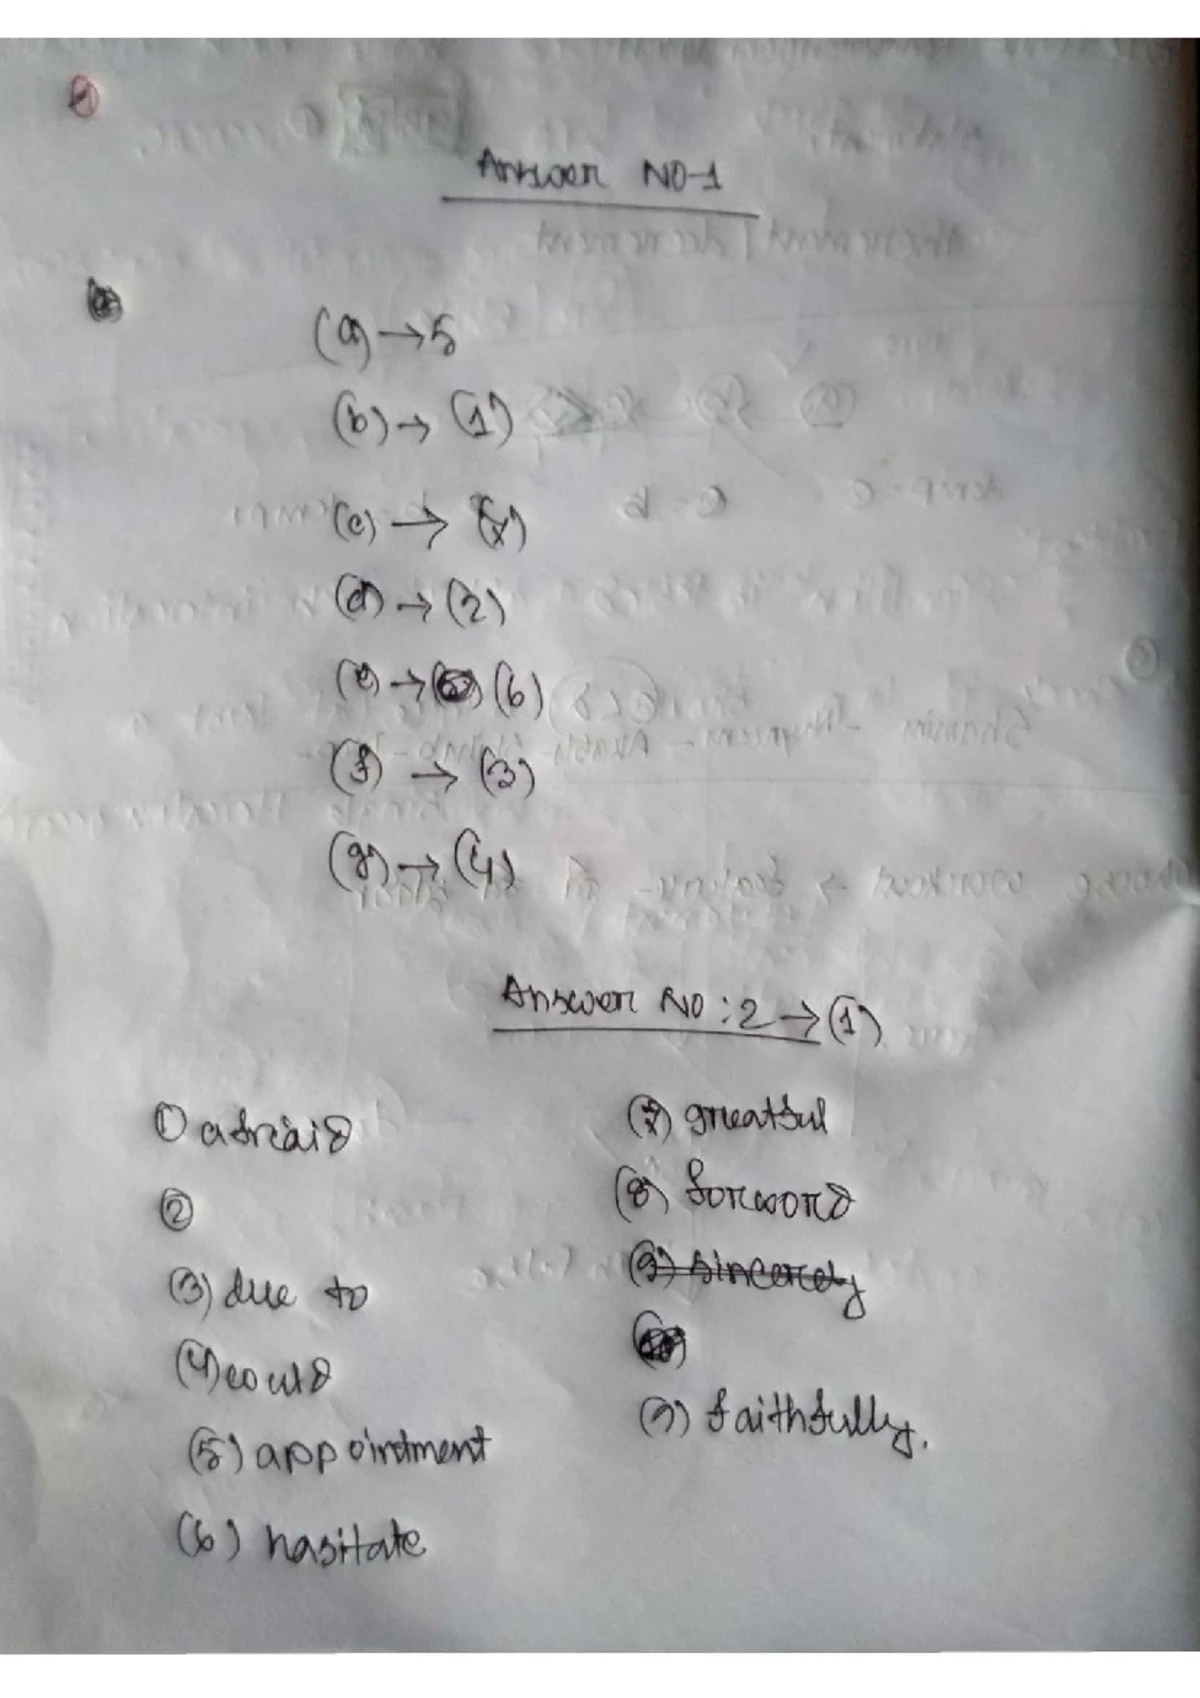 Answer NO-1
(a) → 5
(b) → (1)
(c) → (7)
(d) → (2)
(e) → (6)
(f) → (3)
(g) → (4)
Answer NO : 2 → (1)
① afraid
②
(3) due to
(4) could
(5) appointment
(6) hasitate
(7) greatful
(8) forword
(9) sincerely
(9) faithfully.